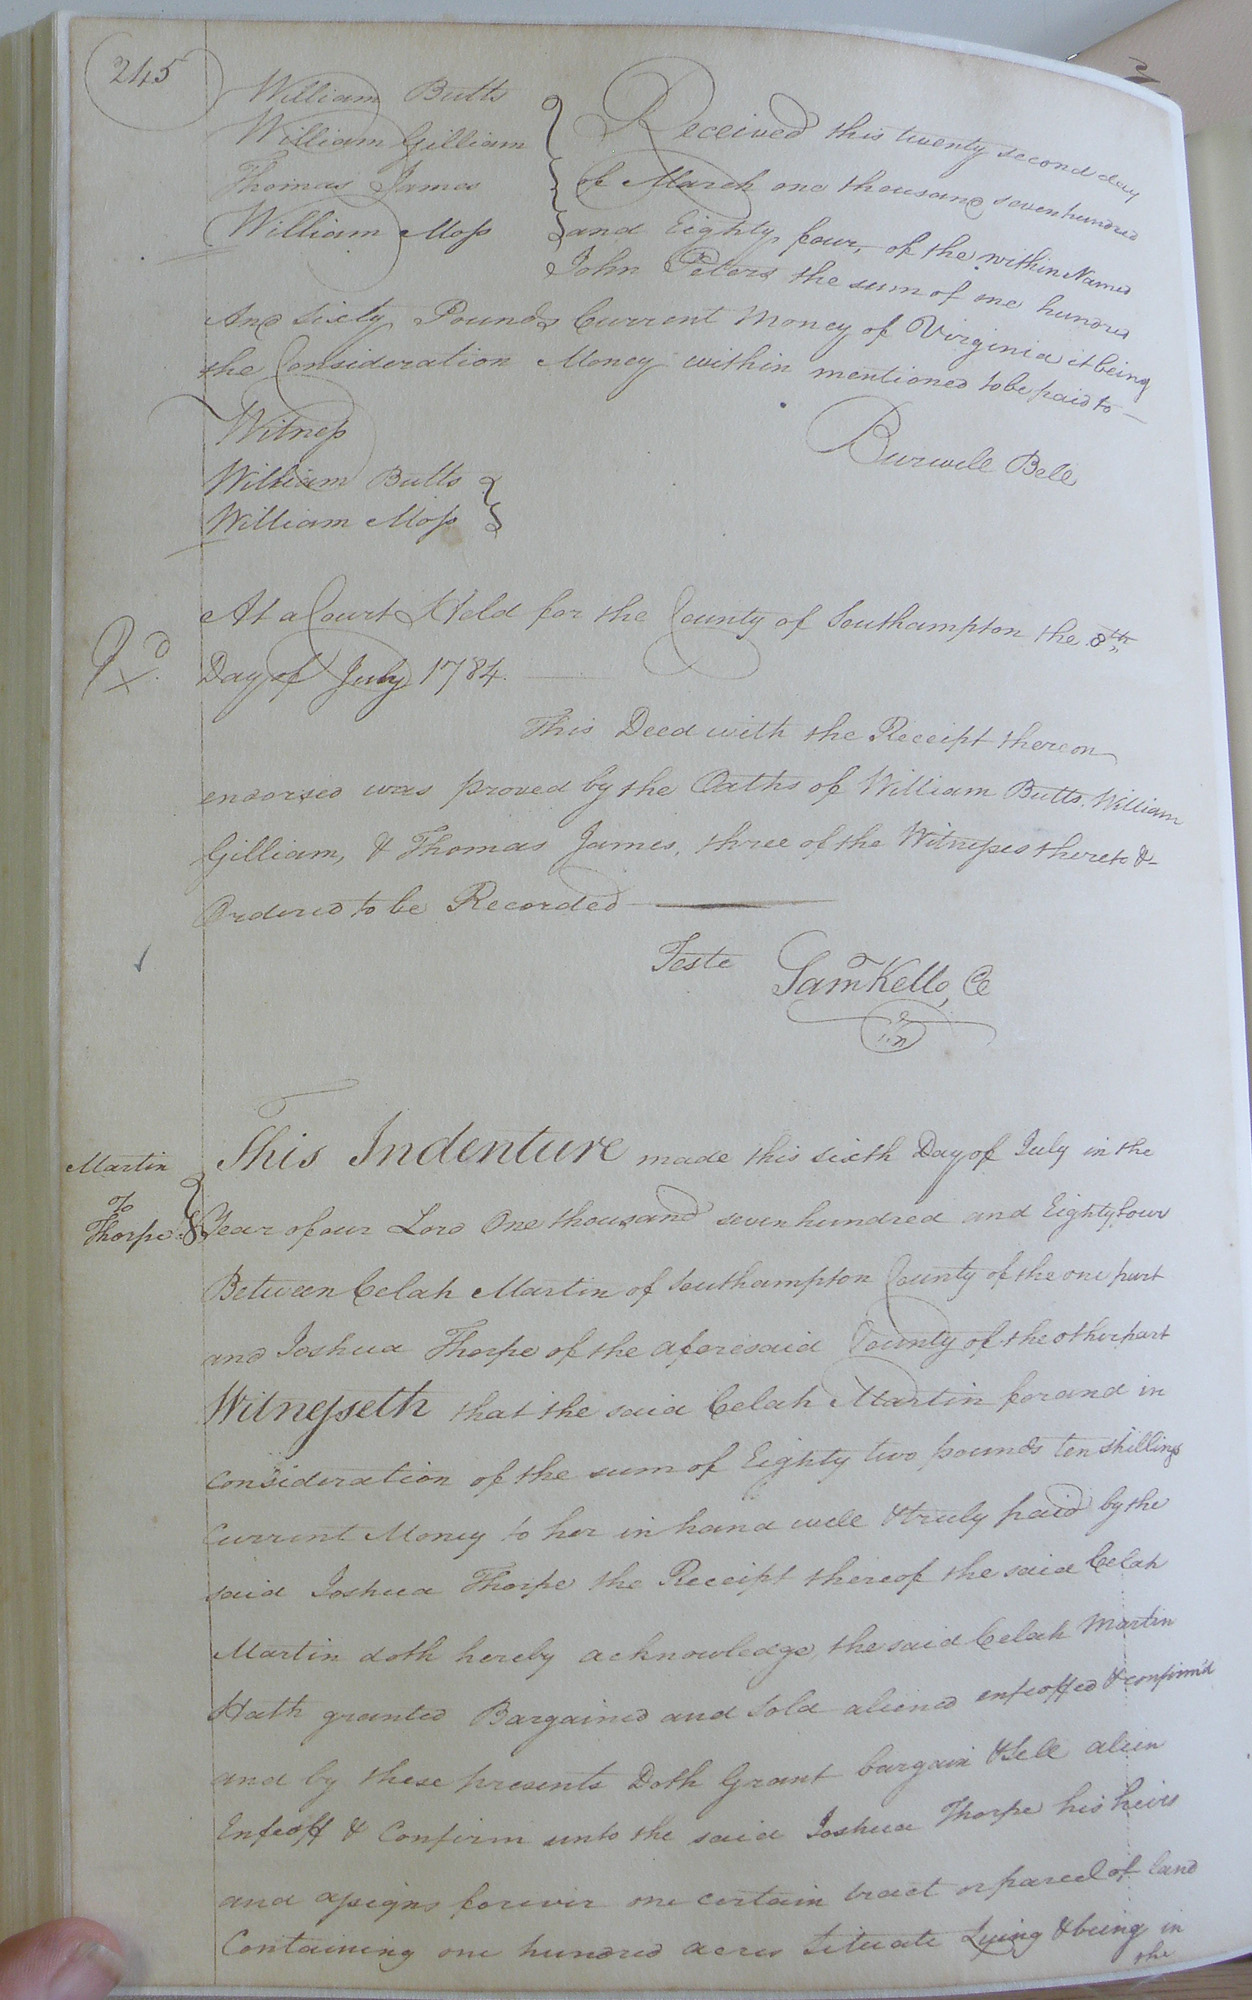 245
William Butts
William Gilliam
Thomas James
William Moss
Received this twenty second day
of March one thousand seven hundred
and Eighty four, of the within Named
John Peters the sum of one hundred
And sixty Pounds Current Money of Virginia it being
the Consideration Money within mentioned to be paid to
Burwell Bell
Witness
William Butts
William Moss
At a Court Held for the County of Southampton the 8th
Day of July 1784.
This Deed with the Receipt thereon
endorsed was proved by the Oaths of William Butts, William
Gilliam, & Thomas James, three of the Witnesses thereto &
Ordered to be Recorded
Teste Sam Kello, C
Martin
to
Thorpe
This Indenture made this sixth Day of July in the
Year of our Lord One thousand seven hundred and Eighty four
Between Celah Martin of Southampton County of the one part
and Joshua Thorpe of the aforesaid County of the other part
Witnesseth that the said Celah Martin for and in
Consideration of the sum of Eighty two pounds ten shillings
Current Money to her in hand well & truly paid by the
said Joshua Thorpe the Receipt thereof the said Celah
Martin doth hereby acknowledge, the said Celah Martin
Hath granted Bargained and Sold aliened enfeoffed & confirm'd
and by these presents Doth Grant bargain & Sell alien
Enfeoff & Confirm unto the said Joshua Thorpe his heirs
and assigns forever one certain tract or parcel of land
Containing one hundred acres Situate Lying & being in
the